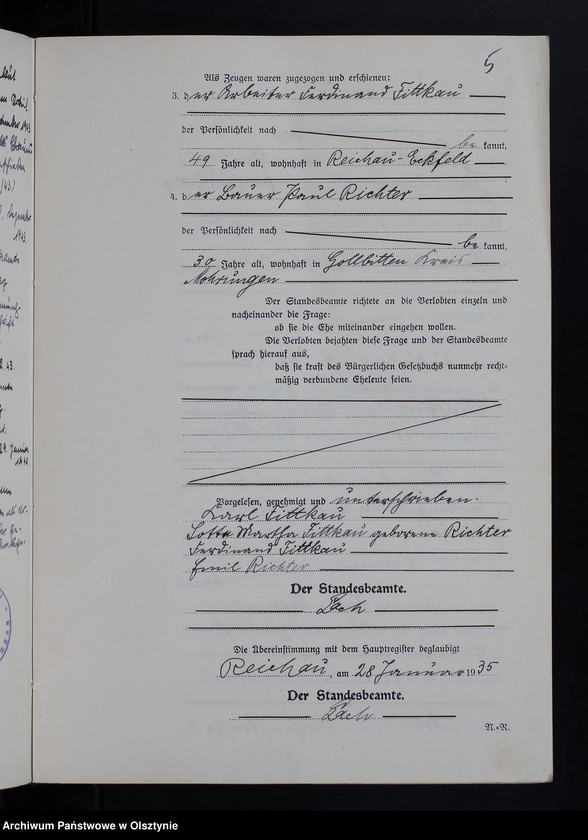 5
Als Zeugen waren zugezogen und erschienen:
3. der Arbeiter Ferdinand Tittkau
der Persönlichkeit nach
be kannt,
49 Jahre alt, wohnhaft in Reichau-Eckfeld
4. der Bauer Paul Richter
der Persönlichkeit nach
be kannt,
30 Jahre alt, wohnhaft in Gollbitten Kreis
Mohrungen
Der Standesbeamte richtete an die Verlobten einzeln und
nacheinander die Frage:
ob sie die Ehe miteinander eingehen wollen.
Die Verlobten bejahten diese Frage und der Standesbeamte
sprach hierauf aus,
daß sie kraft des Bürgerlichen Gesetzbuchs nunmehr recht-
mäßig verbundene Eheleute seien.
Vorgelesen, genehmigt und unterschrieben.
Karl Tittkau
Martha Tittkau geborene Richter
Ferdinand Tittkau
Emil Richter
Der Standesbeamte.
Die Übereinstimmung mit dem Hauptregister beglaubigt
Reichau, am 28 Januar 1935
Der Standesbeamte.
Archiwum Państwowe w Olsztynie